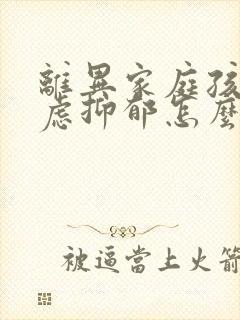 離異家庭孩
慮抑郁怎麼
被逼當上火箭